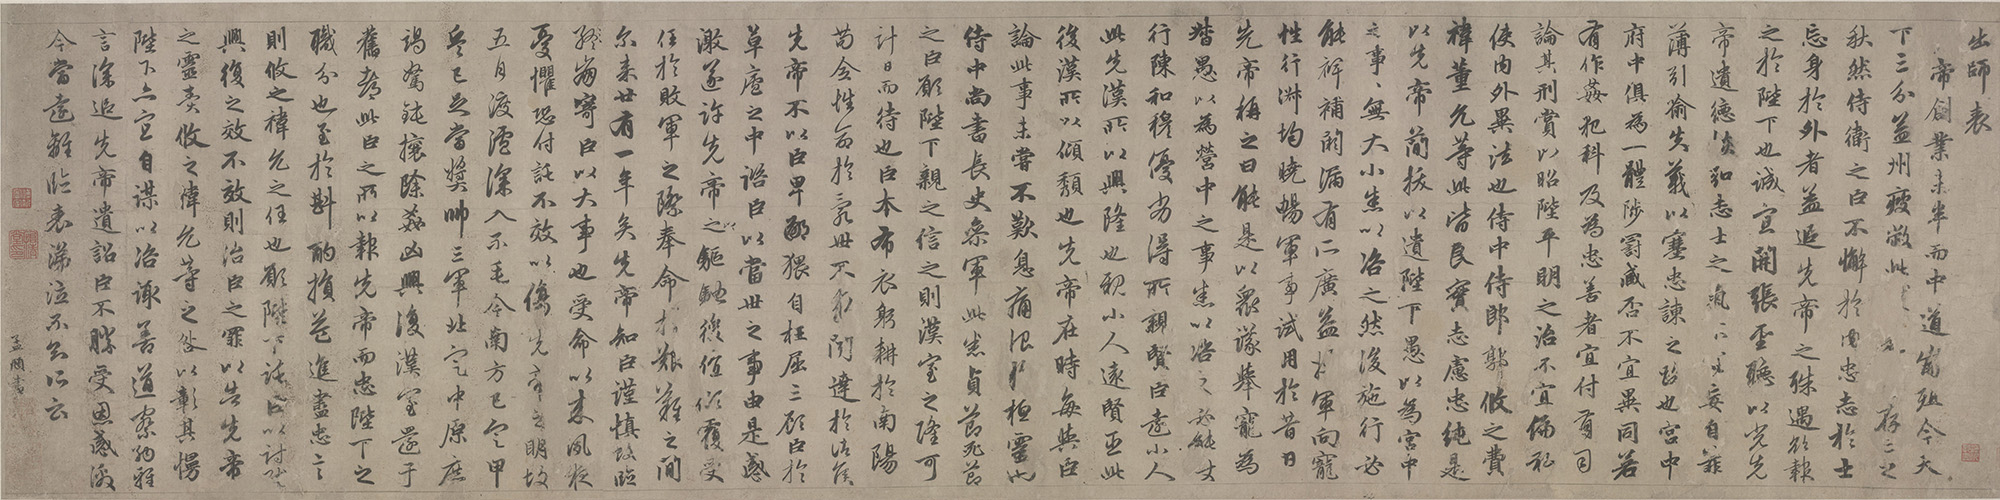 出師表
帝創業未半而中道崩殂今天
下三分益州疲敝此存亡之
秋然侍衛之臣不懈於內忠志於士
忘身於外者蓋追先帝之殊遇欲報
之於陛下也誠宜開張聖聽以光先
帝遺德恢弘志士之氣不宜妄自菲
薄引喻失義以塞忠諫之路也宮中
府中俱為一體陟罰臧否不宜異同若
有作姦犯科及為忠善者宜付有司
論其刑賞以昭陛平明之治不宜偏私
使內外異法也侍中侍郎郭攸之費
禕董允等此皆良實志慮忠純是
以先帝簡拔以遺陛下愚以為宮中
之事、無大小悉以咨之然後施行必
能裨補闕漏有所廣益將軍向寵
性行淑均曉暢軍事試用於昔日
先帝稱之曰能是以眾議舉寵為
督愚以為營中之事悉以咨之必能使
行陳和穆優劣得所親賢臣遠小人
此先漢所以興隆也親小人遠賢臣此
後漢所以傾頹也先帝在時每與臣
論此事未嘗不歎息痛恨於桓靈也
侍中尚書長史參軍此悉貞亮死節
之臣願陛下親之信之則漢室之隆可
計日而待也臣本布衣躬耕於南陽
苟全性命於亂世不求聞達於諸侯
先帝不以臣卑鄙猥自枉屈三顧臣於
草廬之中諮臣以當世之事由是感
激遂許先帝之驅馳後值傾覆受
任於敗軍之際奉命於艱難之間
爾來廿有一年矣先帝知臣謹慎故臨
終崩寄臣以大事也受命以來夙夜
憂懼恐付託不效以傷先帝之明故
五月渡瀘深入不毛今南方已定甲
兵已足當獎帥三軍北定中原庶
竭駑鈍攘除姦凶興復漢室還于
舊都此臣之所以報先帝而忠陛下之
職分也至於斟酌損益進盡忠言
則攸之禕允之任也願陛下託臣以討賊
興復之效不效則治臣之罪以告先帝
之靈責攸之禕允等之咎以彰其慢
陛下亦宜自謀以咨諏善道察納雅
言深追先帝遺詔臣不勝受恩感激
今當遠離臨表涕泣不知所云
孟頫書